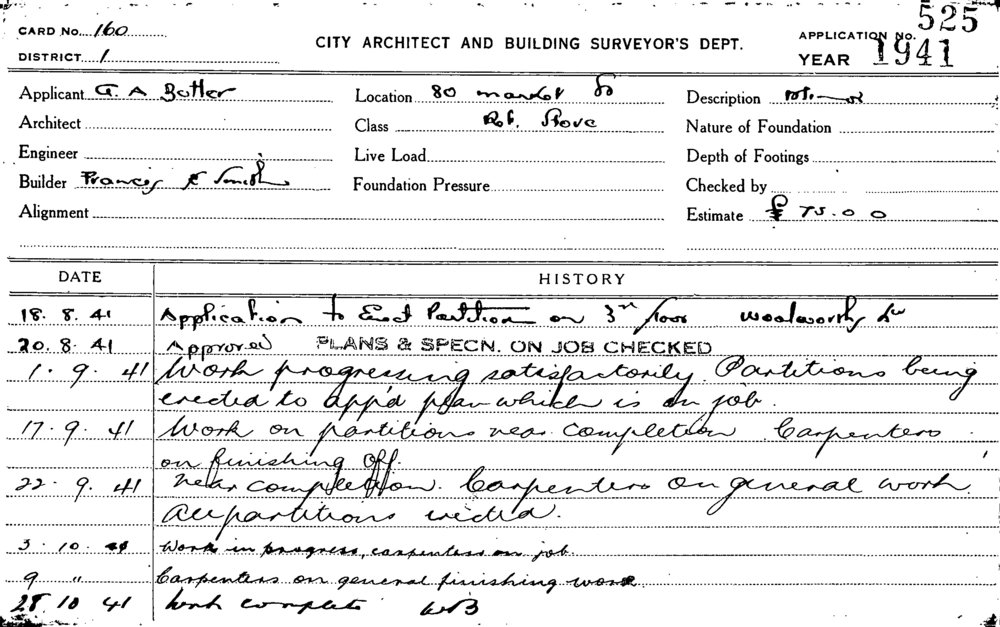 CARD No. 160
DISTRICT 1
CITY ARCHITECT AND BUILDING SURVEYOR'S DEPT.
APPLICATION No. 525
YEAR 1941
Applicant G. A Butler
Architect
Engineer
Builder Francis E Smith
Alignment
Location 80 market St
Class Ret. Store
Live Load
Foundation Pressure
Description
Nature of Foundation
Depth of Footings
Checked by
Estimate £ 75.0 0
DATE HISTORY
18. 8. 41 Application to Erect Partition on 3rd floor Woolworths
20. 8. 41 Approved PLANS & SPECN. ON JOB CHECKED
1. 9. 41 Work progressing satisfactorily. Partitions being
erected to app'd plan which is on job.
17. 9. 41 Work on partitions near completion Carpenters
on finishing off.
22. 9. 41 Near completion. Carpenters on general work.
All partitions erected.
3. 10. 41 Work in progress, carpenters on job.
9 " Carpenters on general finishing work.
28. 10 41 Work complete WB